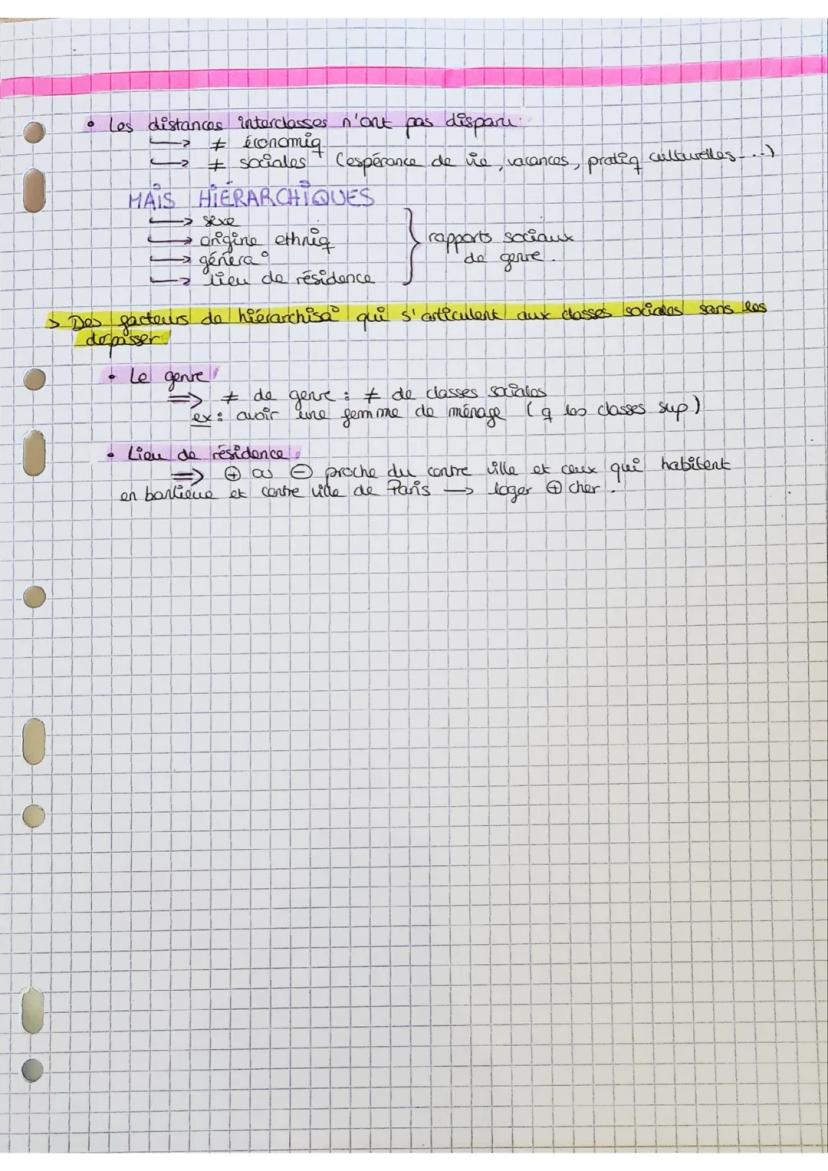 • Les distances interclasses n'ont pas disparu :
↳ ≠ économiq
↳ ≠ sociales (espérance de vie, vacances, pratiq culturelles...)
MAIS HIÉRARCHIQUES
↳ sexe
↳ origine ethniq
↳ généra°
↳ lieu de résidence
} rapports sociaux
de genre.
> Des facteurs de hiérarchisa° qui s'articulent aux classes sociales sans les
dépasser.
• Le genre
⇒ ≠ de genre : ≠ de classes sociales
ex : avoir une femme de ménage (q les classes sup)
• Lieu de résidence
⇒ ⊕ ou ⊖ proche du centre ville et ceux qui habitent
en banlieue et centre ville de Paris → loger ⊕ cher.